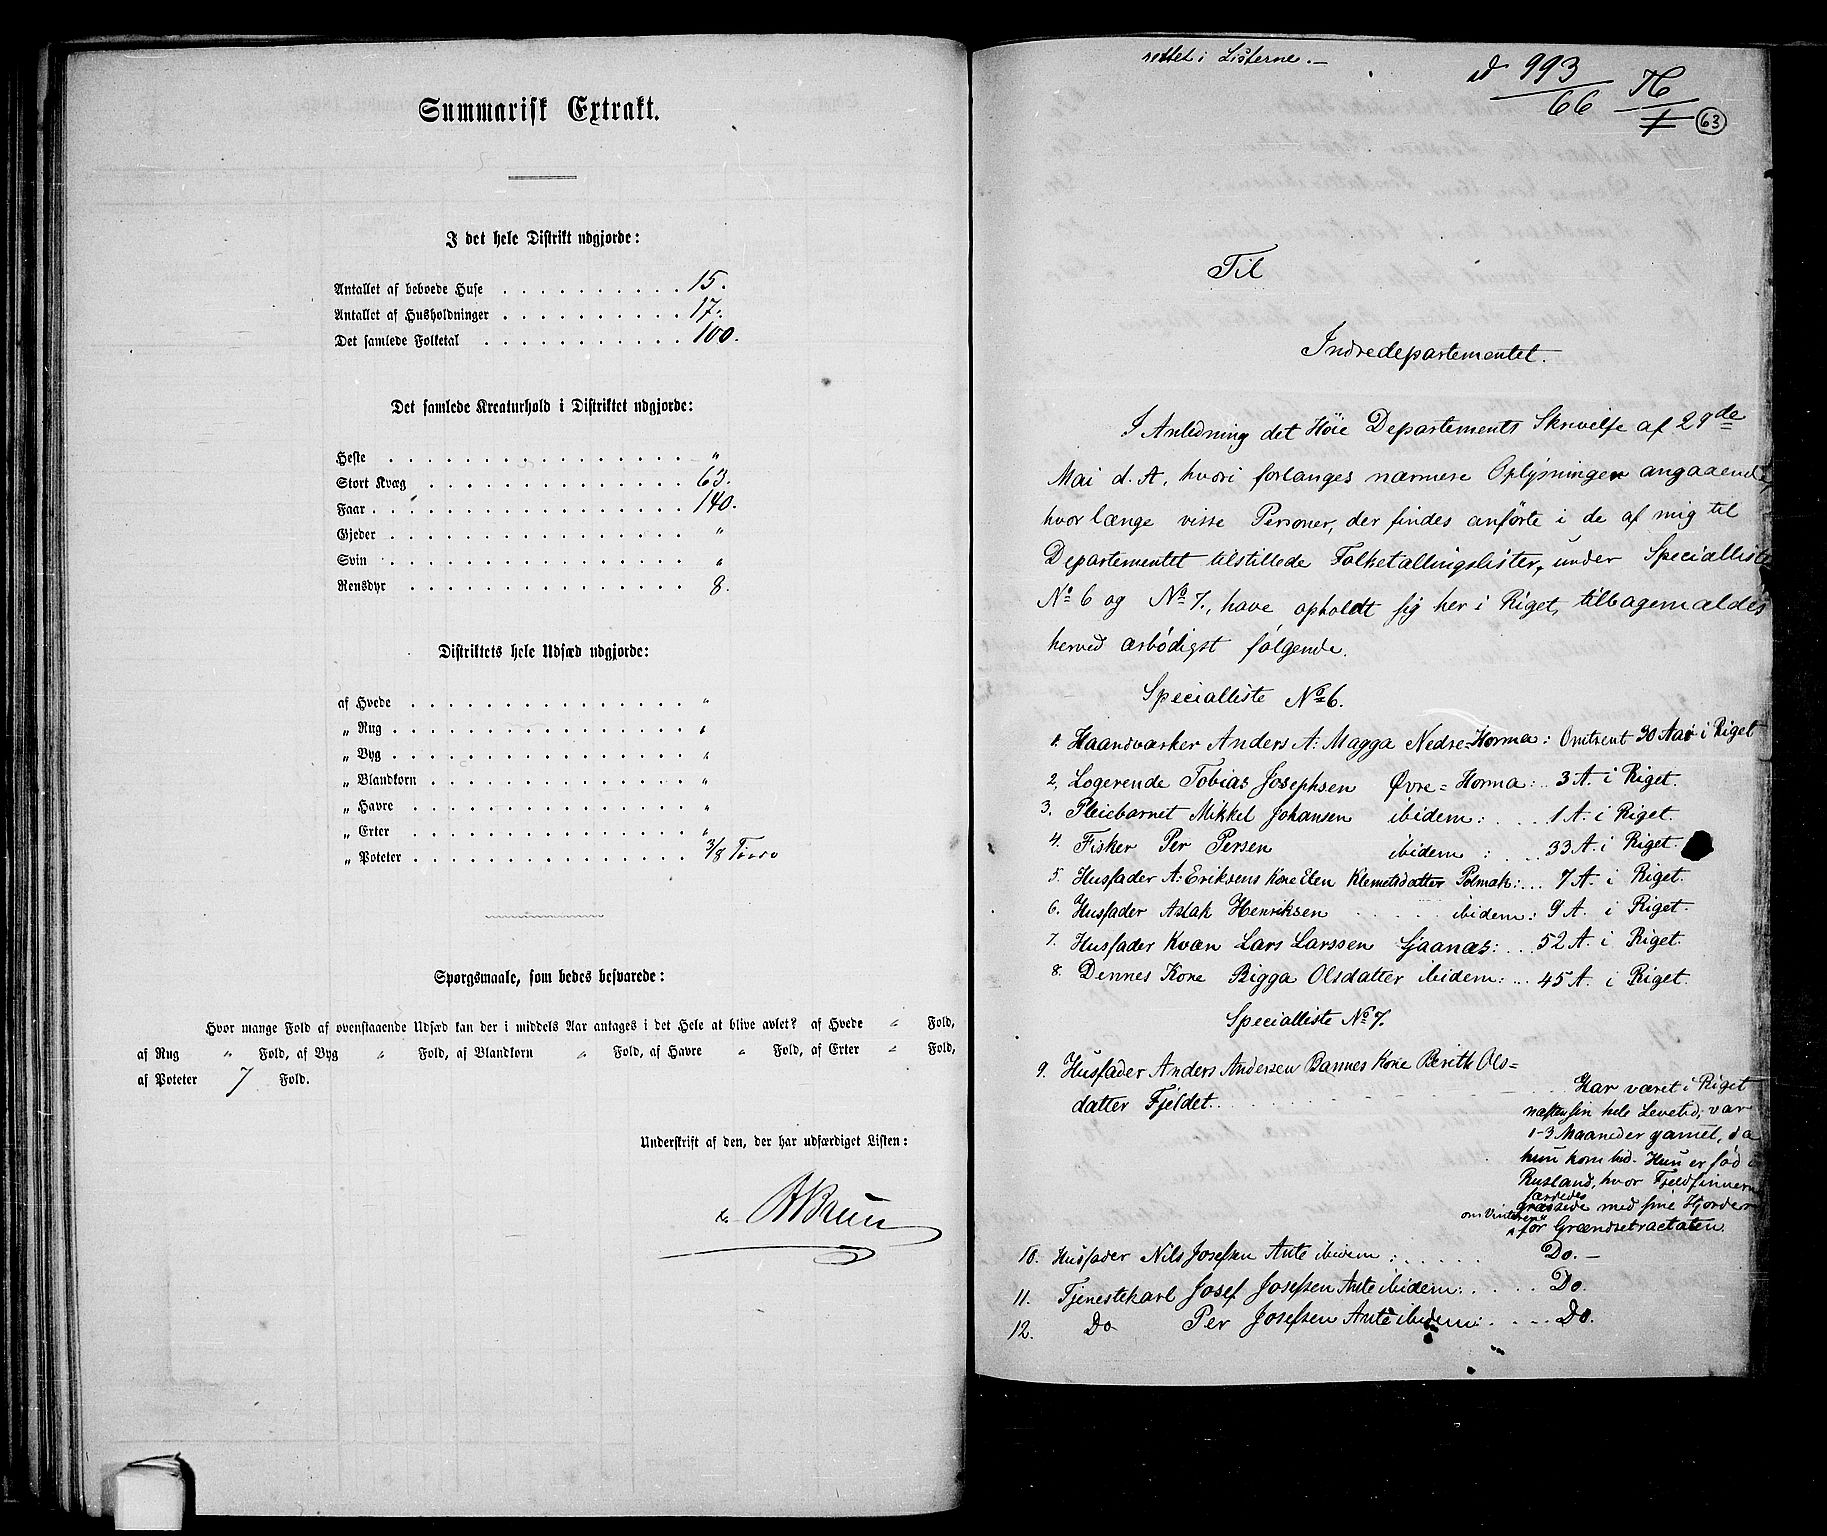 Summarisk Extrakt.
I det hele Distrikt udgjorde:
Antallet af beboede Huse . . . . . . . . . . 15.
Antallet af Husholdninger . . . . . . . . . . 17.
Det samlede Folketal . . . . . . . . . . . 100.
Det samlede Kreaturhold i Distriktet udgjorde:
Heste . . . . . . . . . . . . . . . . "
Stort Kvæg . . . . . . . . . . . . . . 63.
Faar . . . . . . . . . . . . . . . . . 140.
Gjeder . . . . . . . . . . . . . . . . "
Svin . . . . . . . . . . . . . . . . "
Rensdyr . . . . . . . . . . . . . . . 8.
Distriktets hele Udsæd udgjorde:
af Hvede . . . . . . . . . . . . . . . "
„ Rug . . . . . . . . . . . . . . . . "
„ Byg . . . . . . . . . . . . . . . . "
„ Blandkorn . . . . . . . . . . . . . . "
„ Havre . . . . . . . . . . . . . . . "
„ Erter . . . . . . . . . . . . . . . "
„ Poteter . . . . . . . . . . . . . . 3/8 Tønde
Spørgsmaale, som bedes besvarede:
Hvor mange Fold af ovenstaaende Udsæd kan der i middels Aar antages i det Hele at blive avlet? af Hvede " Fold,
af Rug " Fold, af Byg " Fold, af Blandkorn " Fold, af Havre " Fold, af Erter " Fold,
af Poteter 7 Fold.
Underskrift af den, der har udfærdiget Listen:
Brun
rettet i Listerne. —
ad 993/66
63
Til
Indredepartementet.
I Anledning det Høie Departements Skrivelse af 29de
Mai d. A, hvori forlanges nærmere Oplysninger angaaende,
hvor længe visse Personer, der findes anførte i de af mig til
Departementet tilstillede Folketællingslister, under Specialliste
No 6 og No 7., have opholdt sig her i Riget, tilbagemeldes
herved ærbødigst følgende.
Specialliste No 6.
1. Haandværker Anders A: Magga Nedre=Horma: Omtrent 30 Aar i Riget
2, Logerende Tobias Josephsen Øvre=Horma: .. 3 A. i Riget.
3. Pleiebarnet Mikkel Johansen ibidem: . . . . 1 A. i Riget.
4. Fisker Per Persen ibidem : . . . 33 A. i Riget.
5. Husfader A: Eriksens Kone Elen Klemetsdatter Polmak: ... 7 A. i Riget.
6. Husfader Aslak Henriksen . . . . . ibidem: 9 A. i Riget.
7. Husfader Kvæn Lars Larssen Gjaanas: ... 52 A. i Riget.
8. Dennes Kone Bigga Olsdatter ibidem: ... 45 A. i Riget.
Specialliste No 7.
9. Husfader Anders Andersen Bannes Kone Berith Ols=
datter Fjeldet. . . . . . . . . . .
Har været i Riget
næsten sin hele Levetid; var
1-3 Maaneder gamel, da
hun kom hid. Hun er fød i
Rusland, hvor Fjeldfinnerne
færdedes
græssede med sine Hjorder
om Vinteren
før Grændsetractaten
10. Husfader Nils Josefsen Ante ibidem : . . . . . . Do. —
11. Tjenestekarl Josef Josefsen Ante ibidem: . . . . . Do.
12. Do Per Josefsen Ante ibidem: . . . . Do.